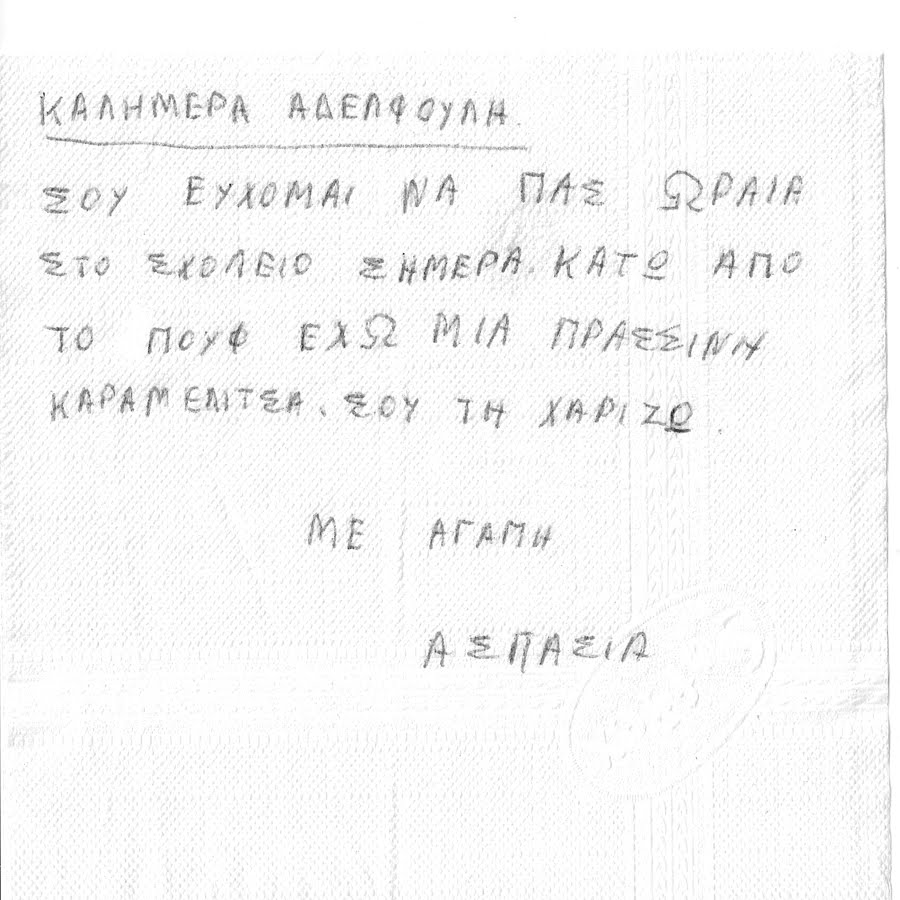 ΚΑΛΗΜΕΡΑ ΑΔΕΛΦΟΥΛΗ.
ΣΟΥ ΕΥΧΟΜΑΙ ΝΑ ΠΑΣ ΩΡΑΙΑ
ΣΤΟ ΣΧΟΛΕΙΟ ΣΗΜΕΡΑ. ΚΑΤΩ ΑΠΟ
ΤΟ ΠΟΥΦ ΕΧΩ ΜΙΑ ΠΡΑΣΣΙΝΗ
ΚΑΡΑΜΕΛΙΤΣΑ. ΣΟΥ ΤΗ ΧΑΡΙΖΩ.
ΜΕ ΑΓΑΠΗ
ΑΣΠΑΣΙΑ